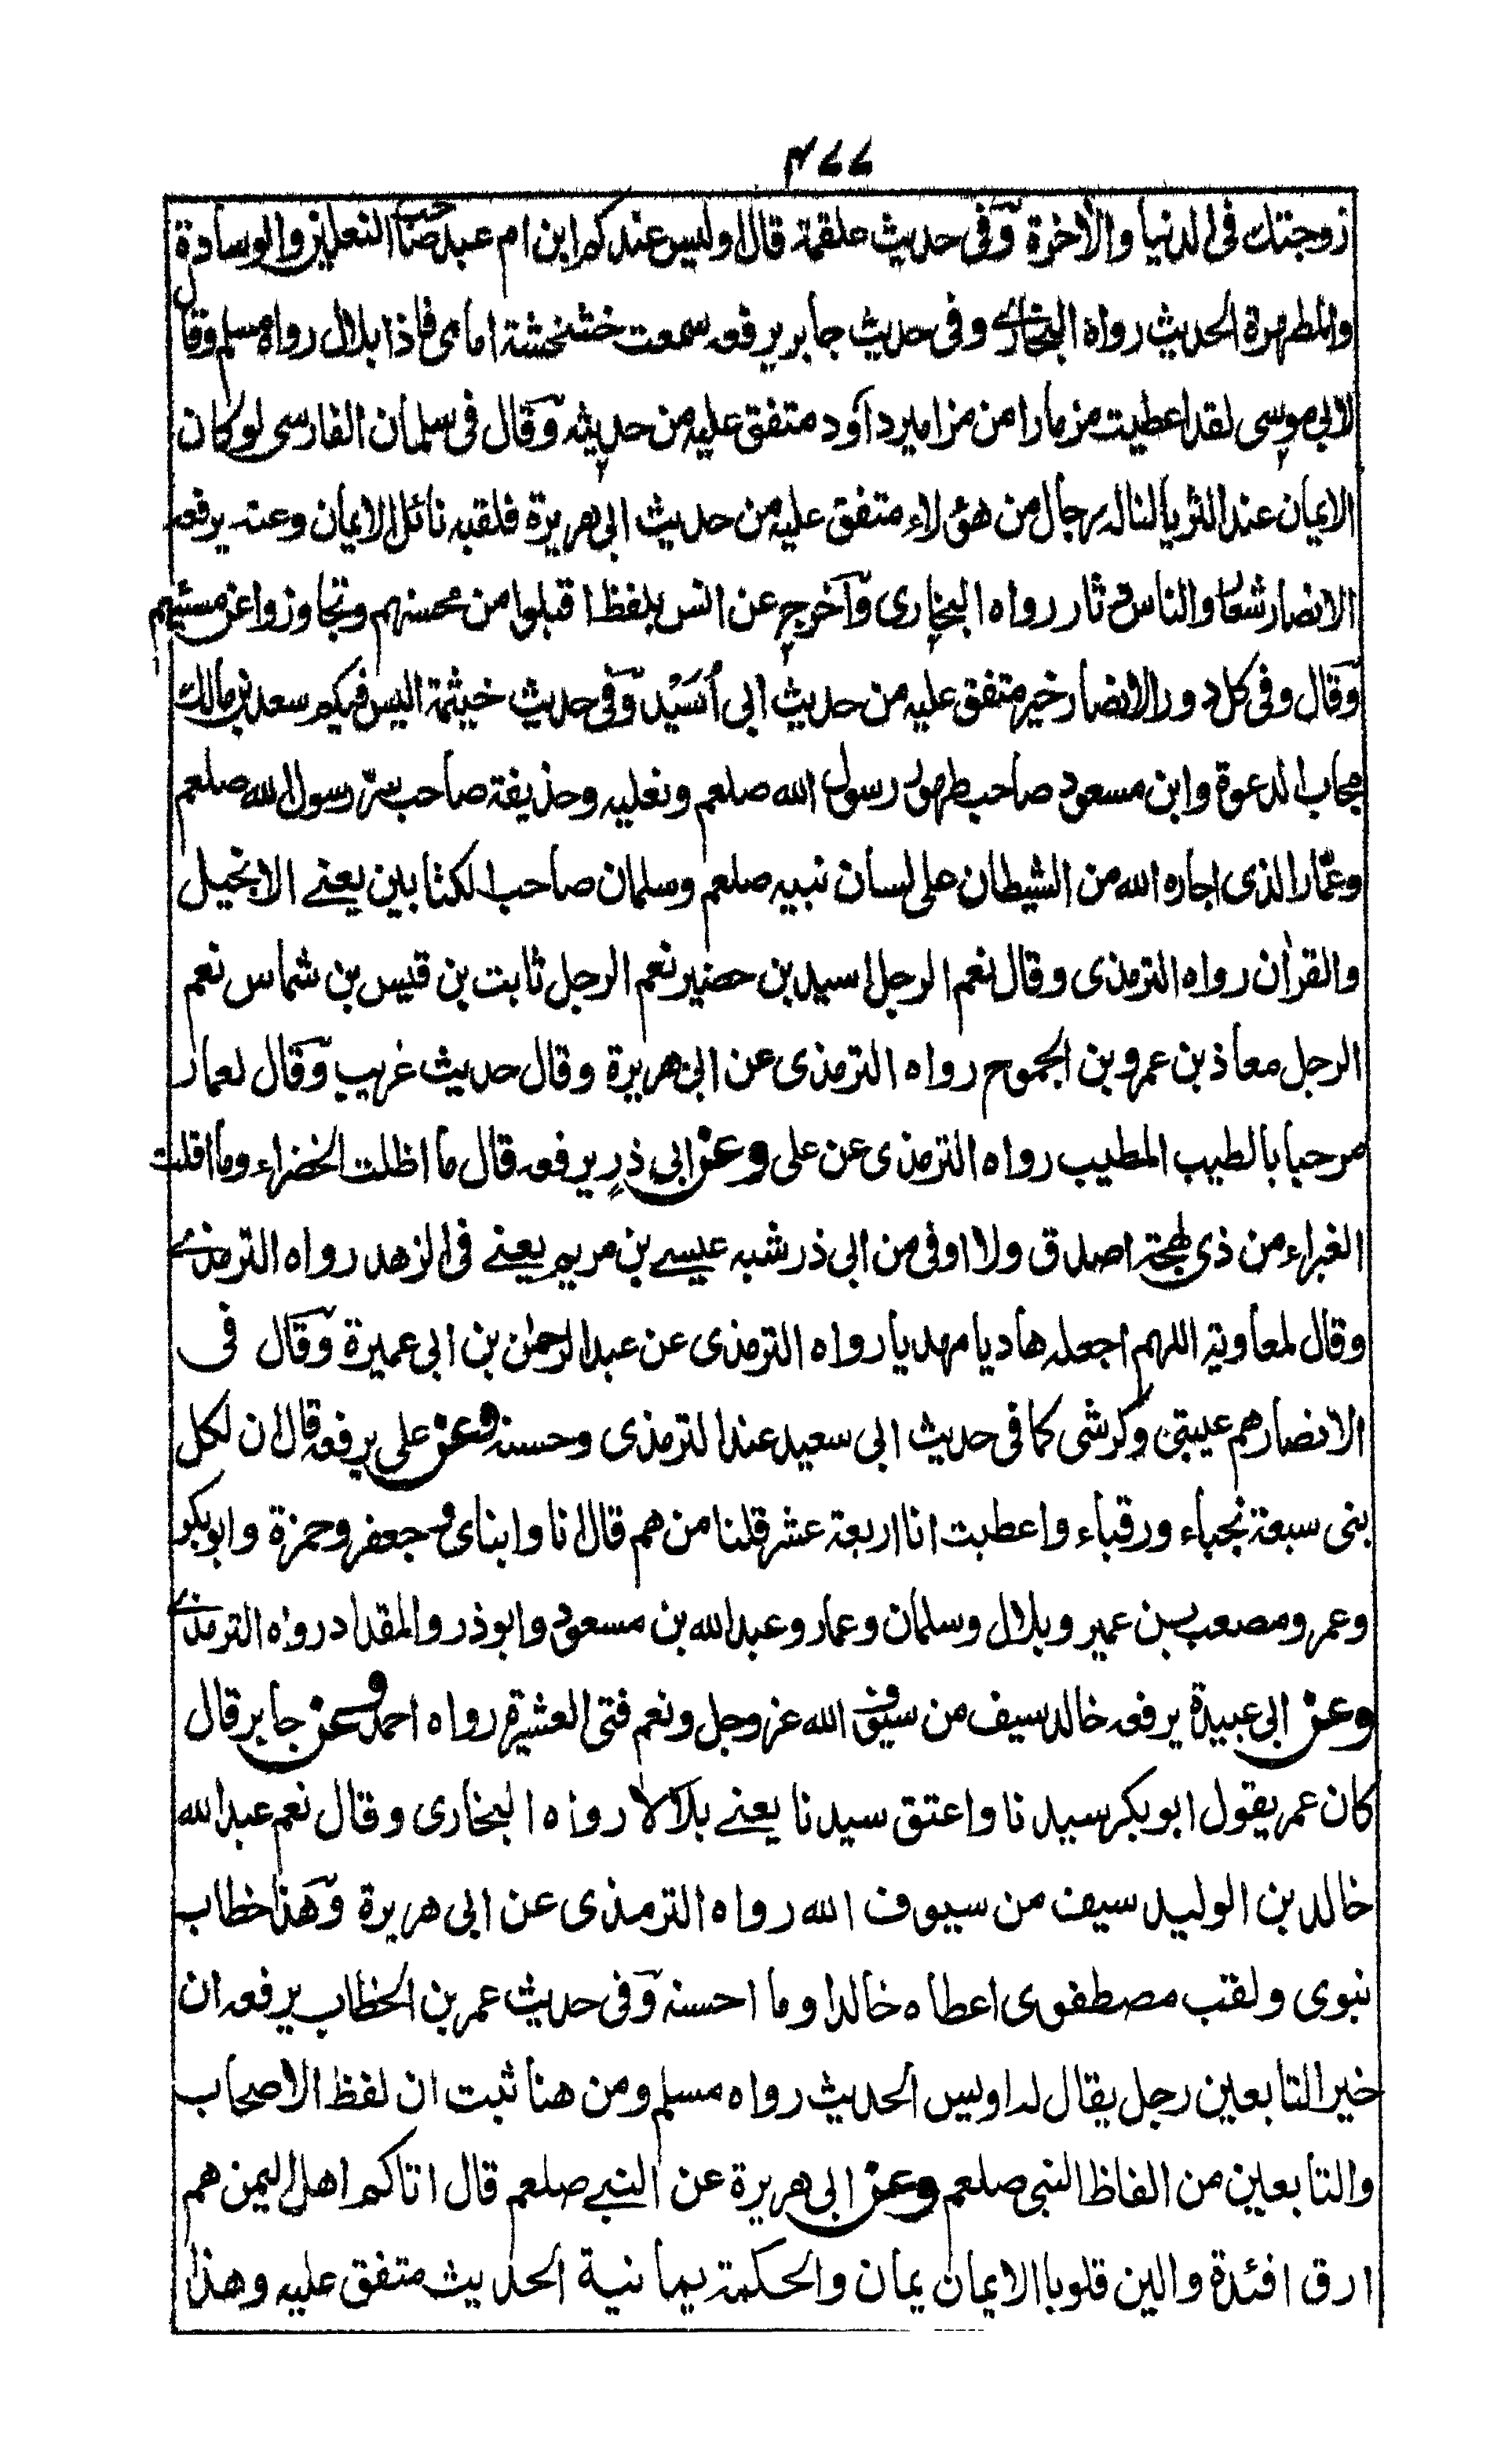 ۴۷۷
زوجتك فى الدنيا والأخرة وفى حديث علقمة قال اوليس عندكم ابن ام عبد صاحب النعلين والوسادة
والمطهرة الحديث رواه البخارى وفى حديث جابر يرفعه سمعت خشخشة امامى فاذا بلال رواه مسلم وقال
لابى موسى لقد اعطيت مزمارا من مزامير داود متفق عليه من حديثه وقال فى سلمان الفارسى لوكان
الايمان عند الثريا لناله رجال من هؤلاء متفق عليه من حديث ابى هريرة فلقبه نائل الايمان وعنه يرفعه
الانصار شعار والناس دثار رواه البخارى وآخرج عن انس بلفظ اقبلوا من محسنهم وتجاوزوا عن مسيئهم
وقال وفى كل دور الانصار خير متفق عليه من حديث ابى أُسَيْد وفى حديث خيثمة اليس فيكم سعد بن مالك
مجاب الدعوة وابن مسعود صاحب طهور رسول الله صلعم ونعليه وحذيفة صاحب سرّ رسول الله صلعم
وعمّار الذى اجاره الله من الشيطان على لسان نبيه صلعم وسلمان صاحب الكتابين يعنے الانجيل
والقرآن رواه الترمذى وقال نعم الرجل اسيد بن حضير نعم الرجل ثابت بن قيس بن شماس نعم
الرجل معاذ بن عمرو بن الجموح رواه الترمذى عن ابى هريرة وقال حديث غريب وقال لعمار
مرحبا بالطيب المطيب رواه الترمذى عن على وعن ابى ذر يرفعه قال ما اظلت الخضراء وما اقلت
الغبراء من ذى لهجة اصدق ولا اوفى من ابى ذر شبه عيسے بن مريم يعنے فى الزهد رواه الترمذے
وقال لمعاوية اللهم اجعله هاديا مهديا رواه الترمذى عن عبد الرحمٰن بن ابى عميرة وقال فى
الانصار هم عيبتى وكرشى كما فى حديث ابى سعيد عند الترمذى وحسنه وعن على يرفعه قال ان لكل
بنى سبعة نجباء ورقباء واعطيت انا اربعة عشر قلنا من هم قال انا وابناى و جعفر وحمزة وابوبكر
وعمر ومصعب بن عمير وبلال وسلمان وعمار وعبد الله بن مسعود وابوذر والمقداد رواه الترمذے
وعن ابى عبيدة يرفعه خالد سيف من سيوف الله عز وجل ونعم فتى العشيرة رواه احمد وعن جابر قال
كان عمر يقول ابوبكر سيدنا واعتق سيدنا يعنے بلالا رواه البخارى وقال نعم عبد الله
خالد بن الوليد سيف من سيوف الله رواه الترمذى عن ابى هريرة وهذا خطاب
نبوى ولقب مصطفوى اعطاه خالدا وما احسنه وفى حديث عمر بن الخطاب يرفعه ان
خير التابعين رجل يقال له اويس الحديث رواه مسلم ومن هنا ثبت ان لفظ الاصحاب
والتابعين من الفاظ النبى صلعم وعن ابى هريرة عن النبے صلعم قال اتاكم اهل اليمن هم
ارق افئدة والين قلوبا الايمان يمان والحكمة يمانية الحديث متفق عليه وهذا